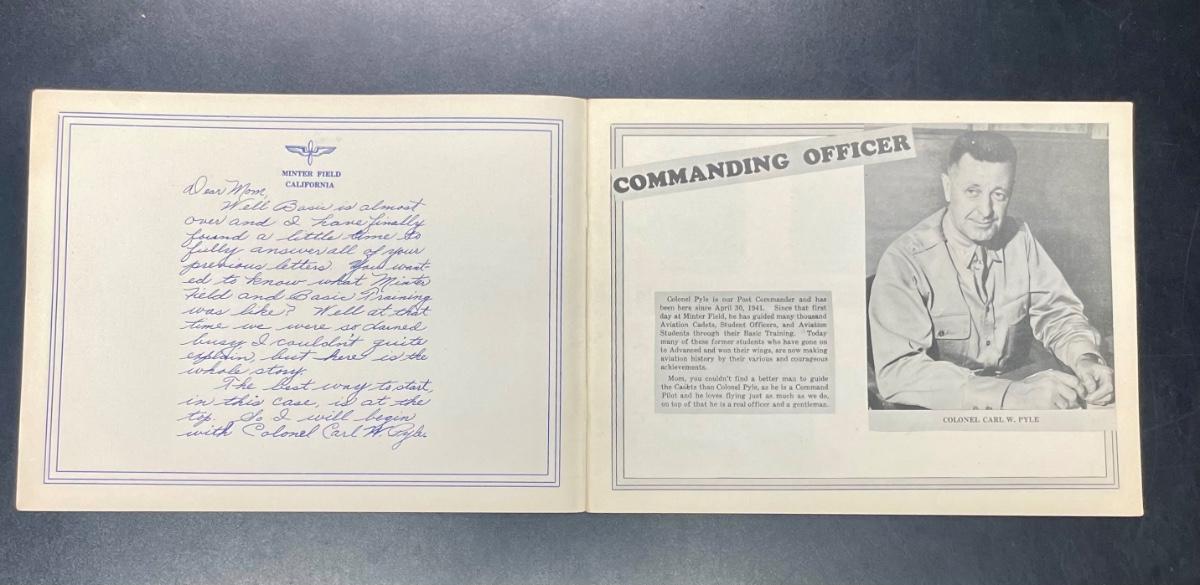 MINTER FIELD
CALIFORNIA
Dear Mom,
Well Basic is almost
over and I have finally
found a little time to
fully answer all of your
previous letters. You want-
ed to know what Minter
Field and Basic Training
was like? Well at that
time we were so darned
busy I couldn't quite
explain, but here is the
whole story.
The best way to start,
in this case, is at the
top. So I will begin
with Colonel Carl W. Pyle.
COMMANDING OFFICER
Colonel Pyle is our Post Commander and has
been here since April 30, 1941. Since that first
day at Minter Field, he has guided many thousand
Aviation Cadets, Student Officers, and Aviation
Students through their Basic Training. Today
many of these former students who have gone on
to Advanced and won their wings, are now making
aviation history by their various and courageous
achievements.
Mom, you couldn't find a better man to guide
the Cadets than Colonel Pyle, as he is a Command
Pilot and he loves flying just as much as we do,
on top of that he is a real officer and a gentleman.
COLONEL CARL W. PYLE